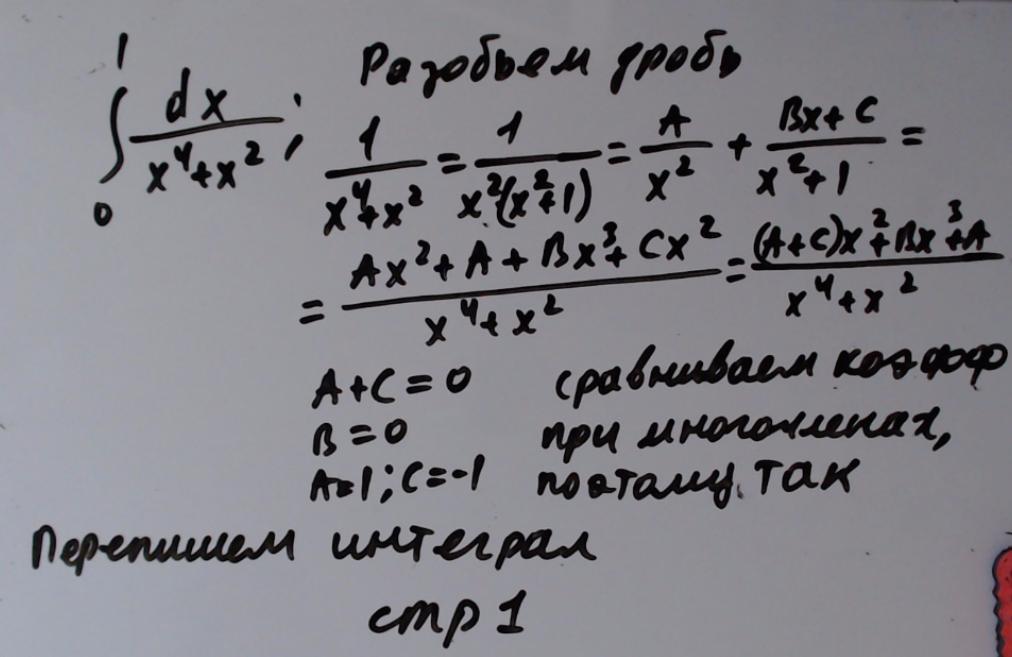 Разобьем дробь
∫₀¹ dx/(x⁴+x²); 1/(x⁴+x²) = 1/(x²(x²+1)) = A/x² + (Bx+C)/(x²+1) =
= (Ax²+A+Bx³+Cx²)/(x⁴+x²) = ((A+C)x²+Bx³+A)/(x⁴+x²)
A+C=0 сравниваем коэфф
B=0 при многочленах,
A=1; C=-1 поэтому так
Перепишем интеграл
стр 1